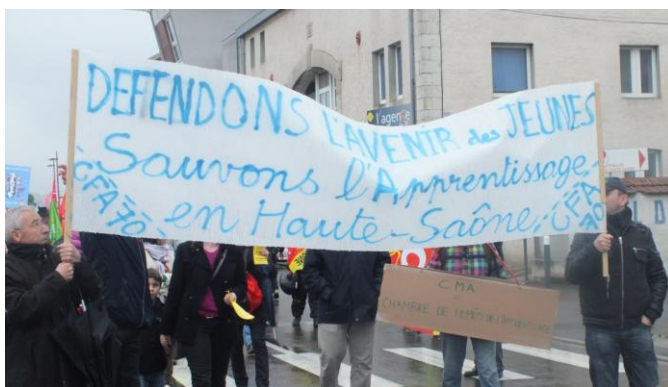 DEFENDONS L'AVENIR des JEUNES
Sauvons l'Apprentissage
en Haute-Saône
CFA 70
CFA 70
l'agence
CMA
CHAMBRE DE